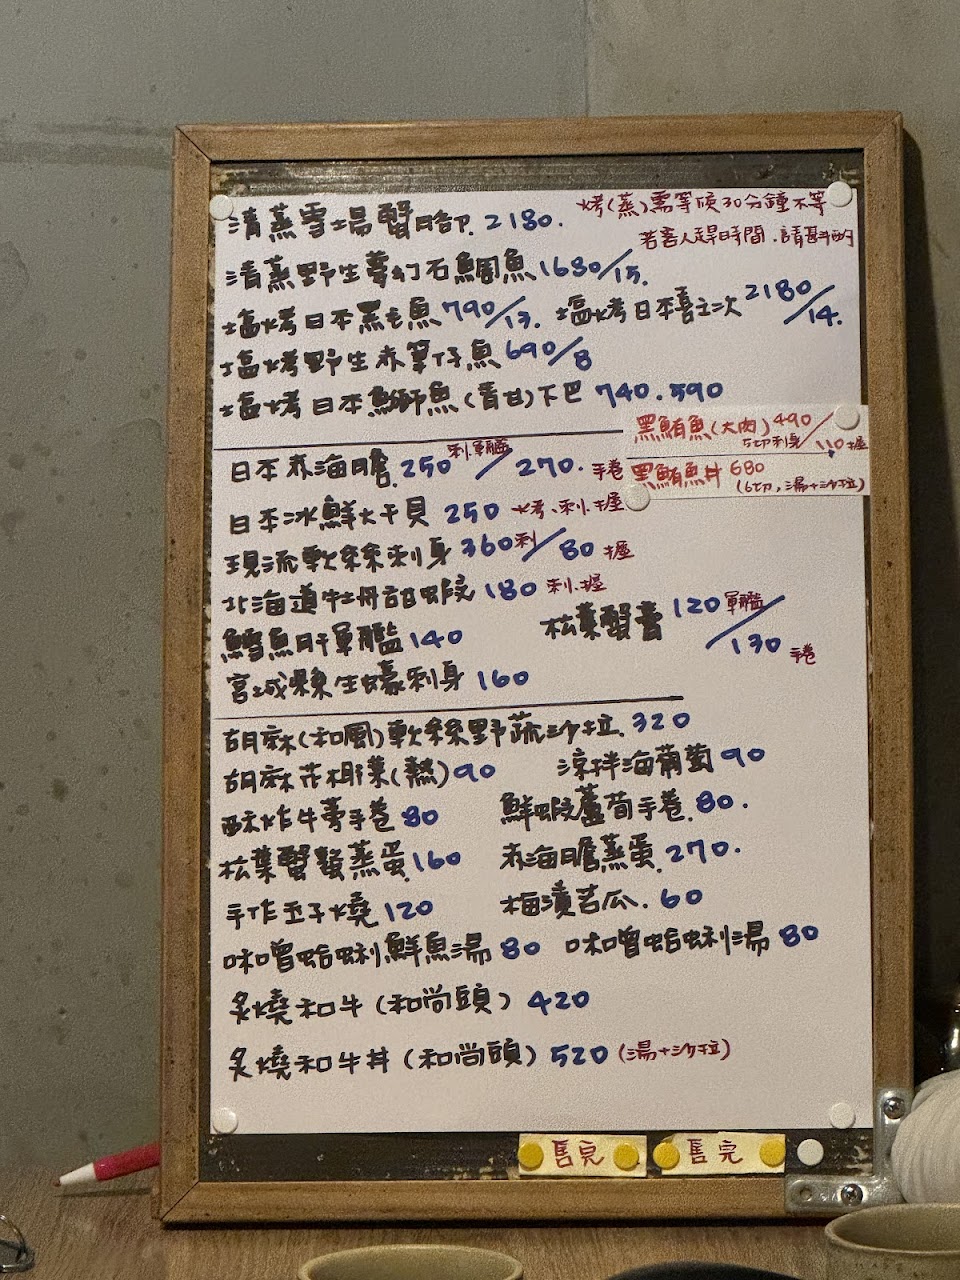 清蒸雪場蟹腳 2180.
烤(蒸)需等候30分鐘不等
若客人趕時間.請斟酌
清蒸野生夢幻石鯛魚 1680/15.
塩烤日本黑毛魚 790/13. 塩烤日本喜之次 2180/14.
塩烤野生赤筆仔魚 690/8
塩烤日本鰤魚(青甘)下巴 740.590
黑鮪魚(大肉)490/110握
5切刺身
日本赤海膽.250刺.軍艦/270.手卷
黑鮪魚丼 680
(6切,湯+沙拉)
日本冰鮮大干貝 250 烤、刺、握
現流軟絲刺身 360刺/80握
北海道牡丹甜蝦 180 刺.握
鱈魚肝軍艦 140 松葉蟹膏 120軍艦/130手卷
宮城縣生蠔刺身 160
胡麻(和風)軟絲野蔬沙拉.320
胡麻花椰菜(熱)90 涼拌海葡萄 90
酥炸牛蒡手卷 80 鮮蝦蘆筍手卷.80.
松葉蟹蟹蒸蛋.160 赤海膽蒸蛋.270.
手作玉子燒 120 梅漬苦瓜.60
味噌蛤蜊鮮魚湯 80 味噌蛤蜊湯 80
炙燒和牛(和尚頭) 420
炙燒和牛丼(和尚頭)520(湯+沙拉)
售完 售完